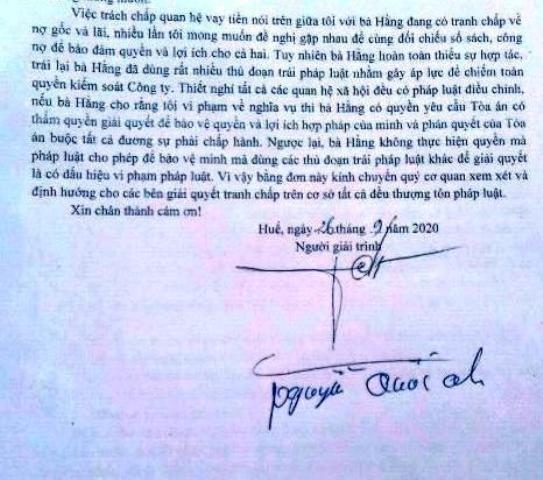 Việc trách chấp quan hệ vay tiền nói trên giữa tôi với bà Hằng đang có tranh chấp về
nợ gốc và lãi, nhiều lần tôi mong muốn đề nghị gặp nhau để cùng đối chiếu sổ sách, công
nợ để bảo đảm quyền và lợi ích cho cả hai. Tuy nhiên bà Hằng hoàn toàn thiếu sự hợp tác,
trái lại bà Hằng đã dùng rất nhiều thủ đoạn trái pháp luật nhằm gây áp lực để chiếm toàn
quyền kiểm soát Công ty. Thiết nghĩ tất cả các quan hệ xã hội đều có pháp luật điều chỉnh,
nếu bà Hằng cho rằng tôi vi phạm về nghĩa vụ thì bà Hằng có quyền yêu cầu Tòa án có
thẩm quyền giải quyết để bảo vệ quyền và lợi ích hợp pháp của mình và phán quyết của Tòa
án buộc tất cả đương sự phải chấp hành. Ngược lại, bà Hằng không thực hiện quyền mà
pháp luật cho phép để bảo vệ mình mà dùng các thủ đoạn trái pháp luật khác để giải quyết
là có dấu hiệu vi phạm pháp luật. Vì vậy bằng đơn này kính chuyển quý cơ quan xem xét và
định hướng cho các bên giải quyết tranh chấp trên cơ sở tất cả đều thượng tôn pháp luật.
Xin chân thành cảm ơn!
Huế, ngày 26 tháng 9 năm 2020
Người giải trình
Nguyễn Quốc